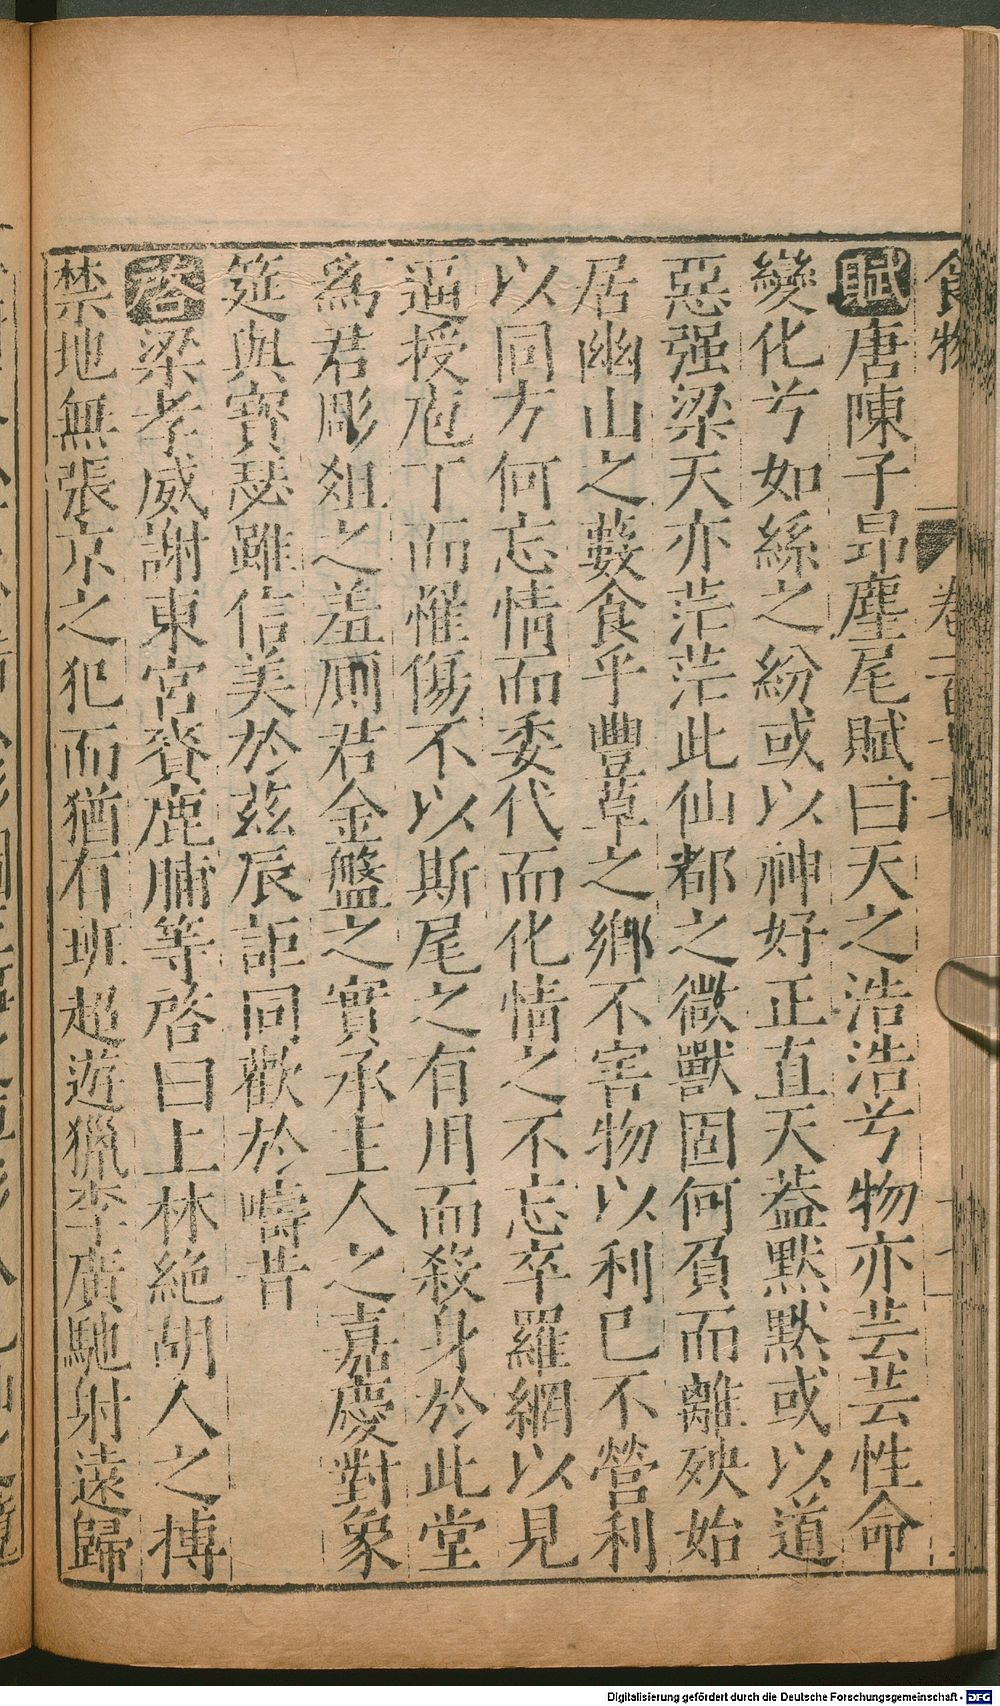 賦唐陳子昂麈尾賦曰天之浩浩兮物亦芸芸性命
變化兮如絲之紛或以神好正直天葢默默或以道
惡强梁天亦茫茫此仙都之微獸固何負而離殃始
居幽山之藪食乎豐草之鄉不害物以利己不營利
以同方何忘情而委代而化情之不忘卒羅網以見
逼授庖丁而惟傷不以斯尾之有用而殺身於此堂
為君彫俎之羞厠君金盤之實承主人之嘉慶對象
筵與寶瑟雖信美於兹辰詎同歡於疇昔
啓梁孝威謝東宮賚鹿脯等啓曰上林絕胡人之搏
禁地無張京之犯而猶有班超遊獵李廣馳射遠歸
食物
卷一百
Digitalisierung gefördert durch die Deutsche Forschungsgemeinschaft - DFG